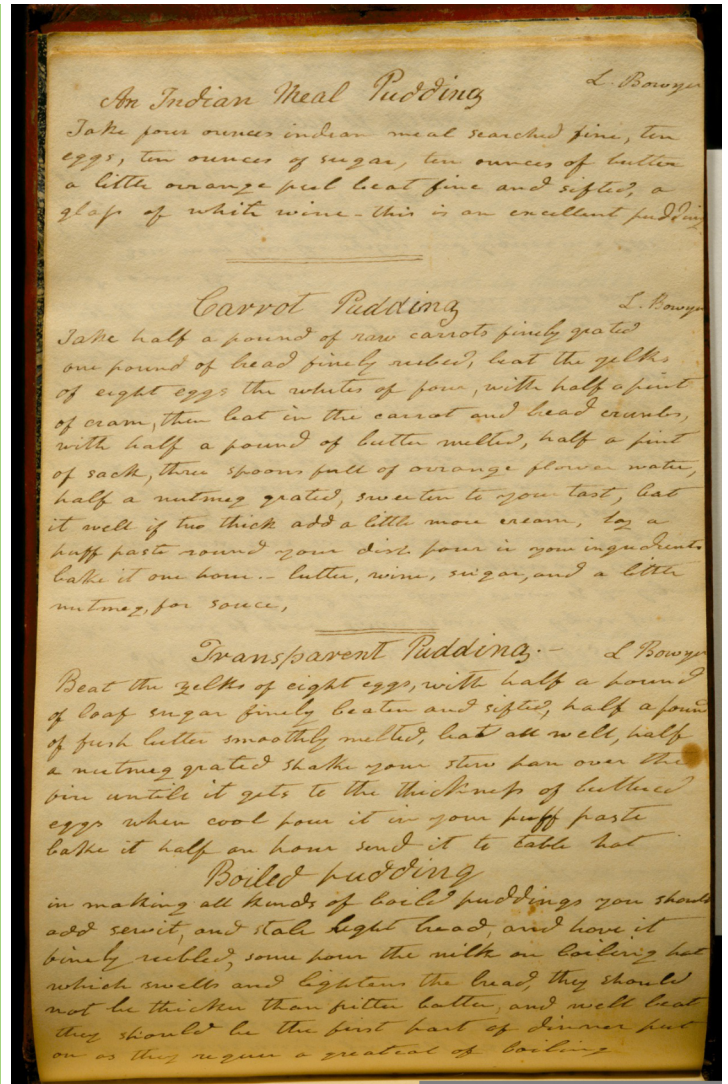 An Indian Meal Pudding
L. Bowyer
Take four ounces indian meal searched fine, ten
eggs, ten ounces of sugar, ten ounces of butter
a little orrange peel beat fine and sifted, a
glass of white wine - this is an excellent pudding
Carrot Pudding
L. Bowyer
Take half a pound of raw carrots finely grated
one pound of bread finely rubed, beat the yelks
of eight eggs the whites of four, with half a pint
of cream, then beat in the carrot and bread crumbs,
with half a pound of butter melted, half a pint
of sack, three spoons full of orrange flower water,
half a nutmeg grated, sweeten to your tast, beat
it well if two thick add a little more cream, lay a
puff paste round your dish pour in your ingredients
bake it one hour. - butter, wine, sugar, and a little
nutmeg, for sauce,
Transparent Pudding. -
L Bowyer
Beat the yelks of eight eggs, with half a pound
of loaf sugar finely beaten and sifted, half a pound
of fresh butter smoothly melted, beat all well, half
a nutmeg grated shake your stew pan over the
fire untile it gets to the thickness of buttered
eggs when cool pour it in your puff paste
bake it half an hour send it to table hot
Boiled pudding
in making all kinds of boiled puddings you should
add and stale light bread, and have it
finely rubbed, some pour the milk on boiling hot
which swells and lightens the bread, they should
not be thicker than fritter batter, and well beat
they should be the first part of dinner put
on as they requer a greateal of boiling